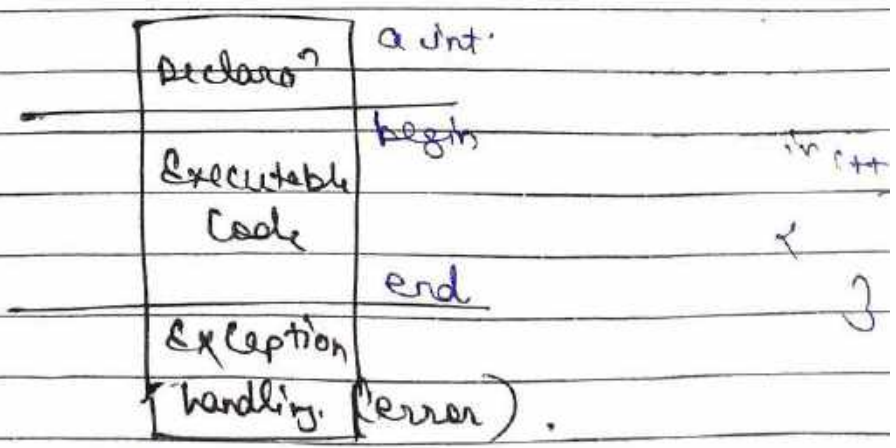 Declaraⁿ a int.
begin
Executable in C++
Code {
end }
Exception
handling. (error).